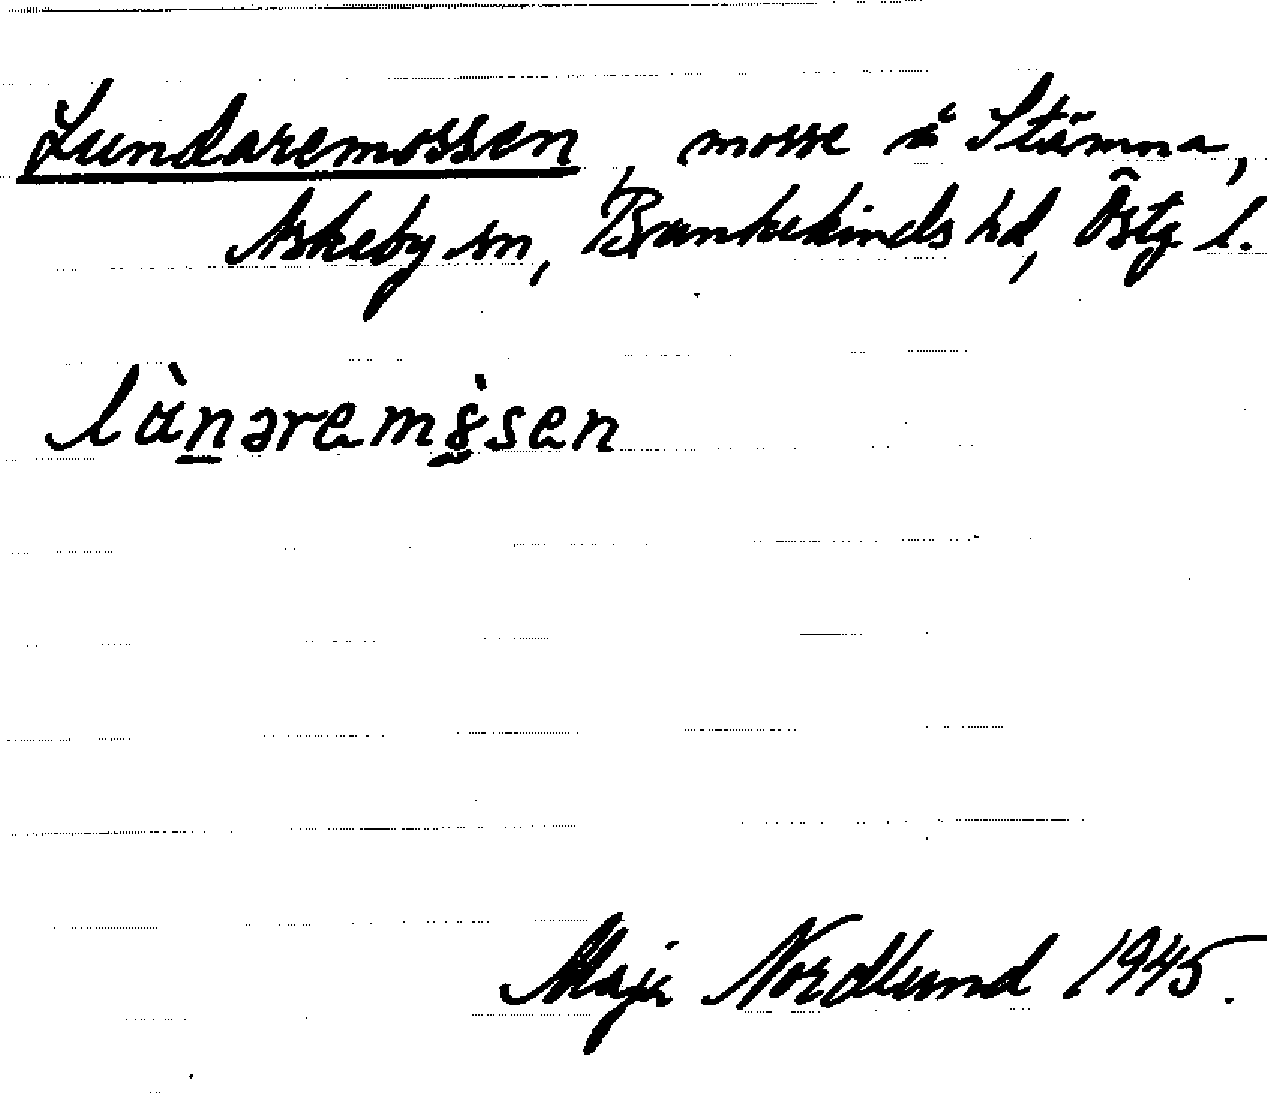 Lundaremossen, mosse å Stämma,
Askeby sn, Bankekinds hd, Östg l.
lànaremòsen
Maja Nordlund 1945.